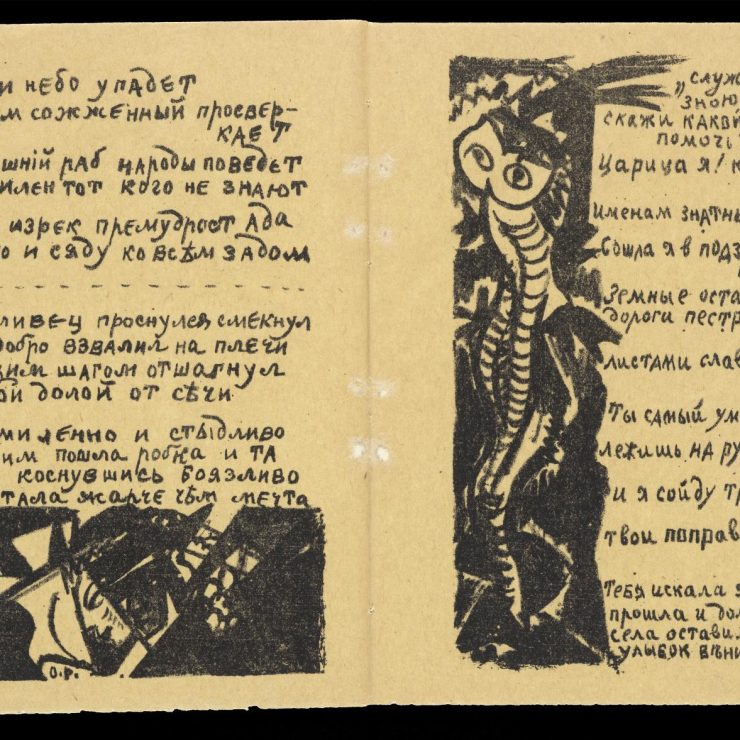 и небо упадет
м сожженный просвер-
кает
шній раб народы поведет
илен тот кого не знают
изрек премудрост ада
о и сяду ко всѣм задом
ливец проснулся смекнул
добро взвалил на плечи
шагом отшагнул
ой долой от сѣчи
ми ленно и стыдливо
им пошла робка и та
коснувшись боязливо
тала жарче чѣм мечта
О.Р.
„служ
зною
скажи какви
помочь
Царица я! к
именам знатны
Сошла я в подз
Земные оста
дороги пестр
листами слав
Ты самый ум
лежишь на ру
и я сойду тр
твои поправ
Тебя искала я
прошла и дол
села остави
улыбок вѣни